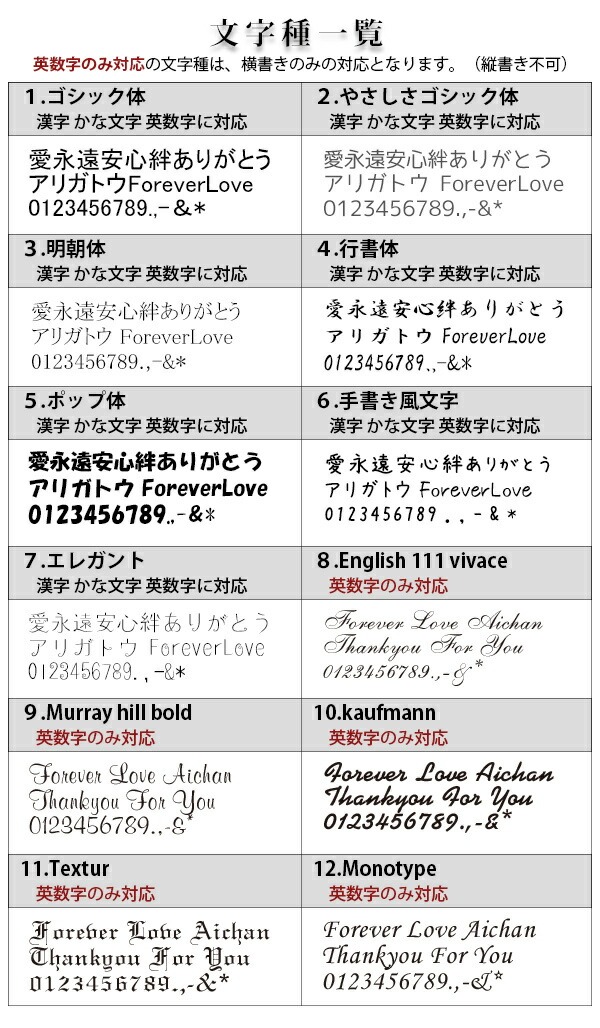 文字種一覧
英数字のみ対応の文字種は、横書きのみの対応となります。（縦書き不可）
1.ゴシック体
漢字 かな文字 英数字に対応
愛永遠安心絆ありがとう
アリガトウForeverLove
0123456789.,-&*
2.やさしさゴシック体
漢字 かな文字 英数字に対応
愛永遠安心絆ありがとう
アリガトウ ForeverLove
0123456789.,-&*
3.明朝体
漢字 かな文字 英数字に対応
愛永遠安心絆ありがとう
アリガトウ ForeverLove
0123456789.,-&*
4.行書体
漢字 かな文字 英数字に対応
愛永遠安心絆ありがとう
アリガトウ ForeverLove
0123456789.,-&*
5.ポップ体
漢字 かな文字 英数字に対応
愛永遠安心絆ありがとう
アリガトウ ForeverLove
0123456789.,-&*
6.手書き風文字
漢字 かな文字 英数字に対応
愛永遠安心絆ありがとう
アリガトウ ForeverLove
0123456789.,-&*
7.エレガント
漢字 かな文字 英数字に対応
愛永遠安心絆ありがとう
アリガトウ ForeverLove
0123456789.,-&*
8.English 111 vivace
英数字のみ対応
Forever Love Aichan
Thankyou For You
0123456789.,-&*
9.Murray hill bold
英数字のみ対応
Forever Love Aichan
Thankyou For You
0123456789.,-&*
10.kaufmann
英数字のみ対応
Forever Love Aichan
Thankyou For You
0123456789.,-&*
11.Textur
英数字のみ対応
Forever Love Aichan
Thankyou For You
0123456789.,-&*
12.Monotype
英数字のみ対応
Forever Love Aichan
Thankyou For You
0123456789.,-&*